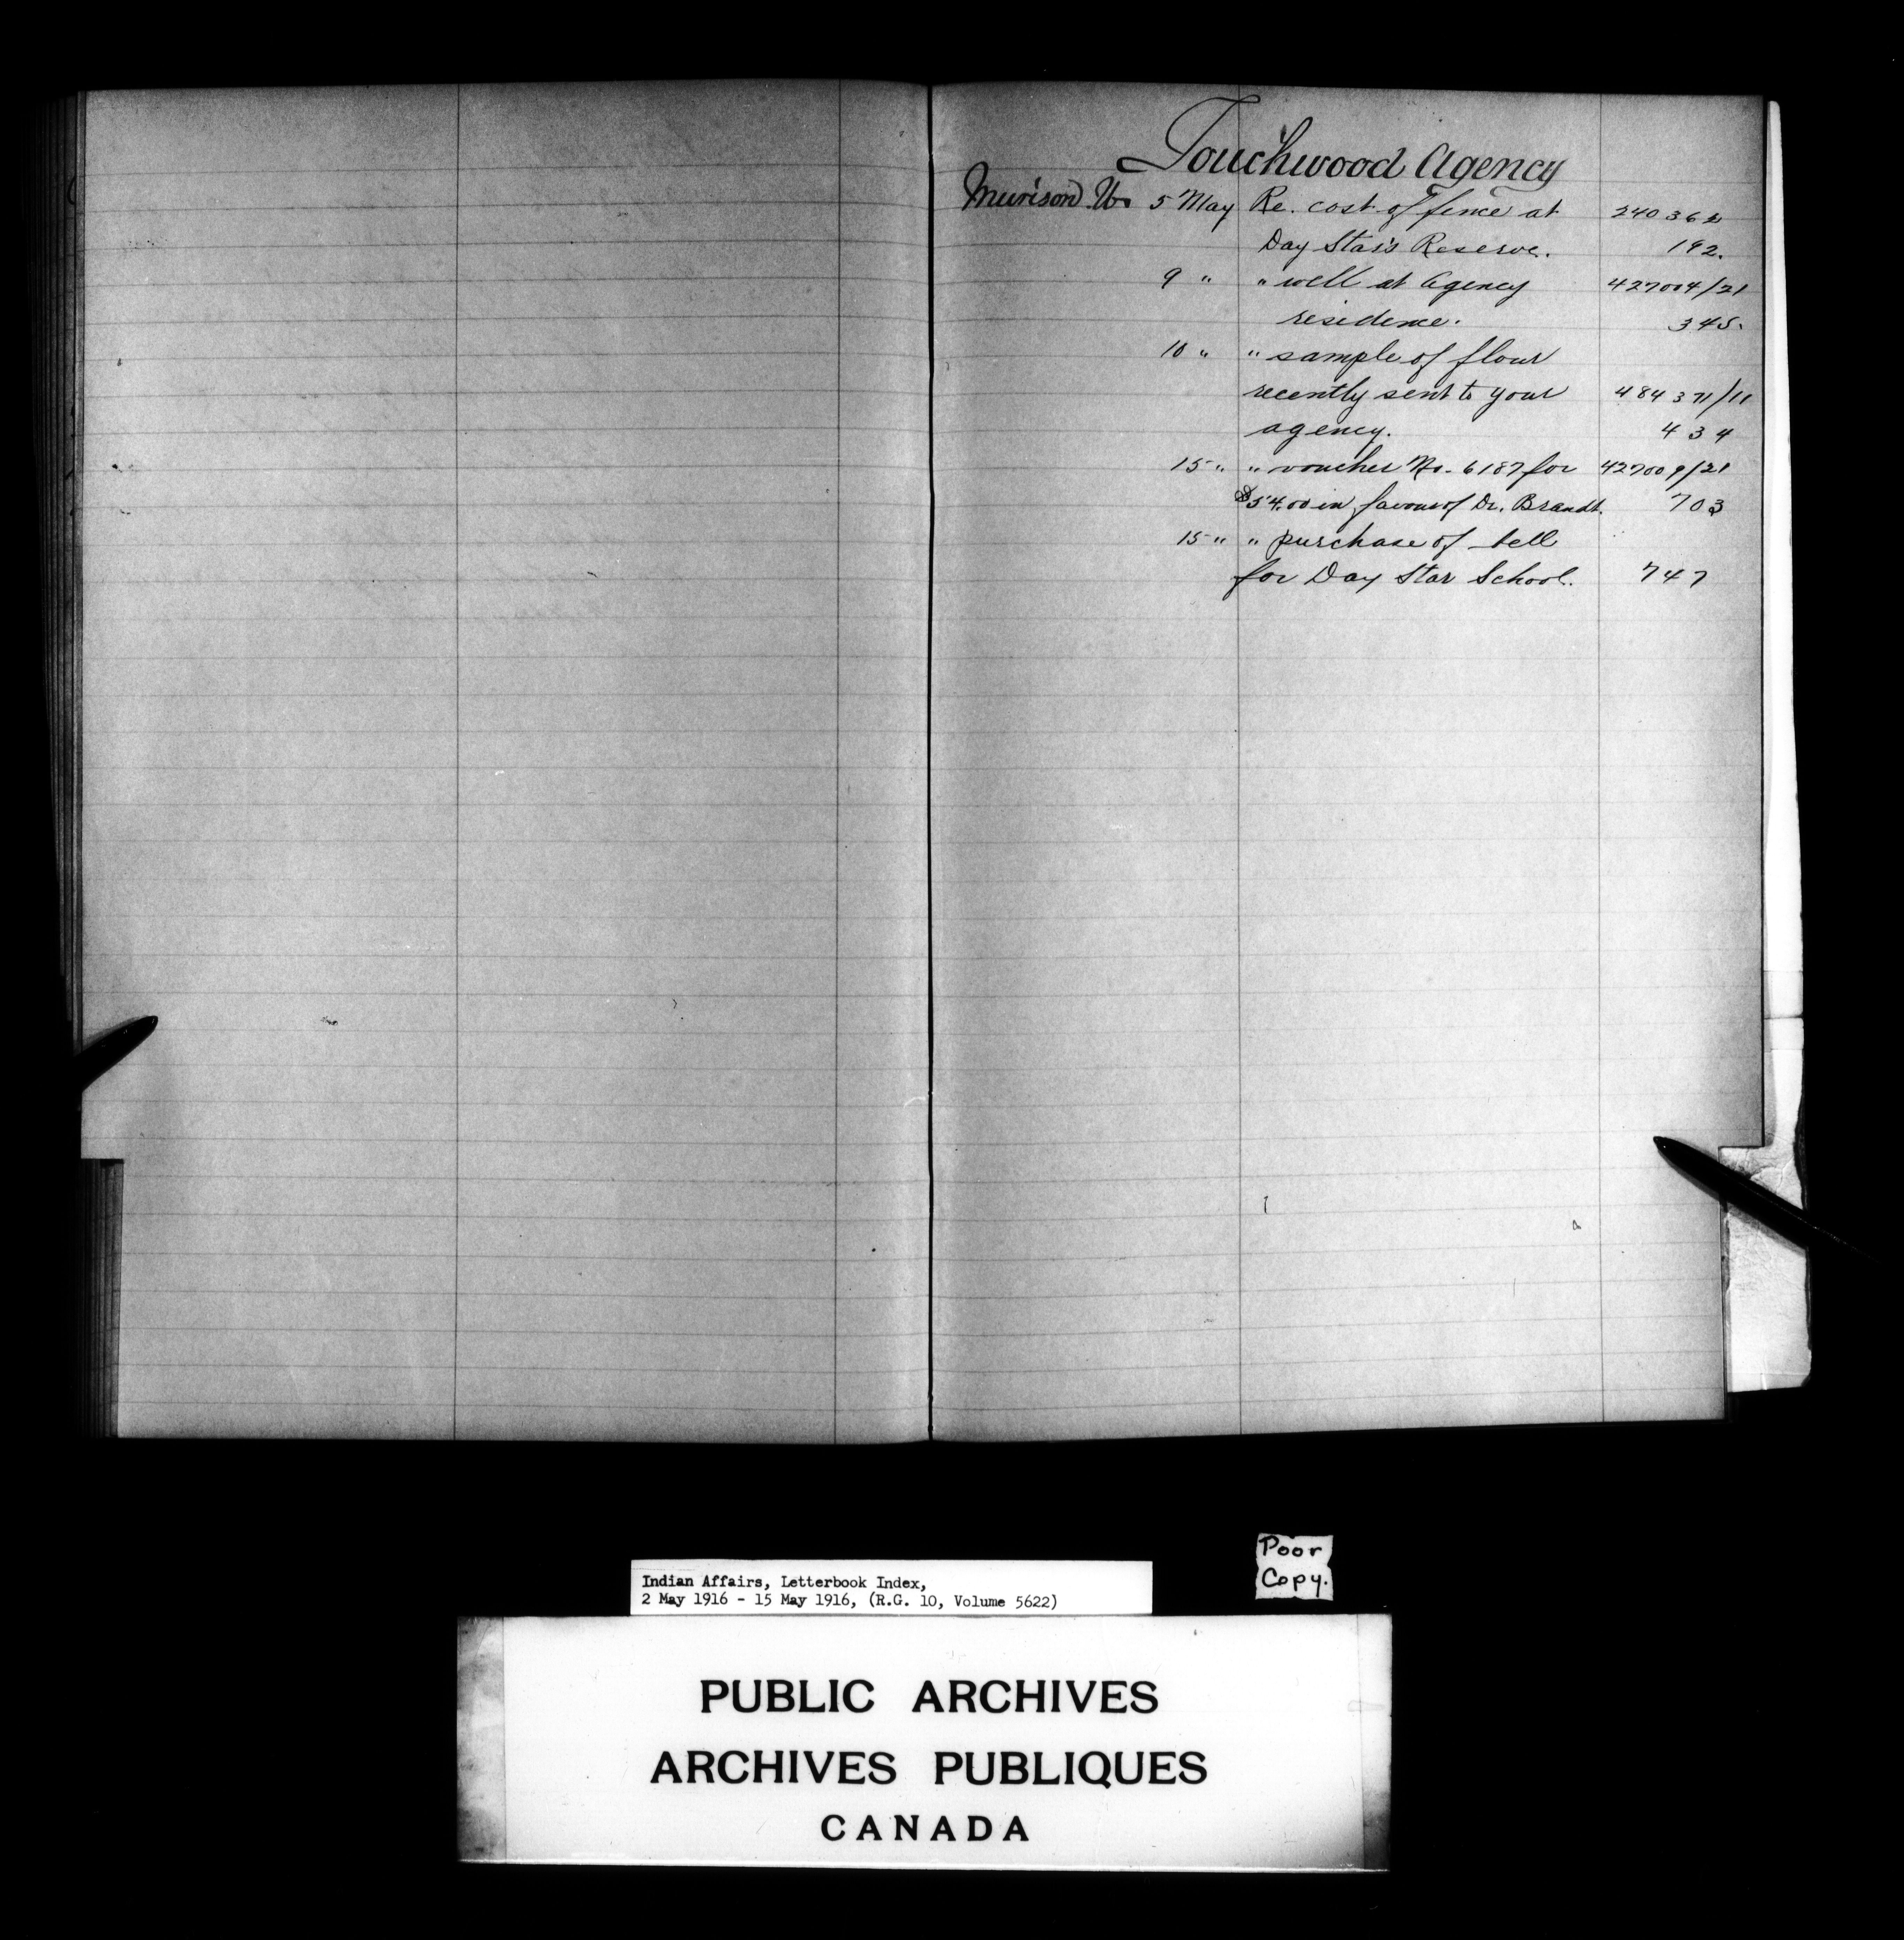 Touchwood Agency
Murison W. 5 May Re. cost of fence at 240362
Day Star's Reserve. 192.
9 " " well at Agency 427004/21
residence. 345.
10 " " sample of flour
recently sent to your 484371/11
agency. 434
15 " " voucher No. 6187 for 427009/21
$54.00 in favour of Dr. Brandt. 703
15 " " purchase of bell
for Day Star School. 747
Poor
Copy.
Indian Affairs, Letterbook Index,
2 May 1916 - 15 May 1916, (R.G. 10, Volume 5622)
PUBLIC ARCHIVES
ARCHIVES PUBLIQUES
CANADA